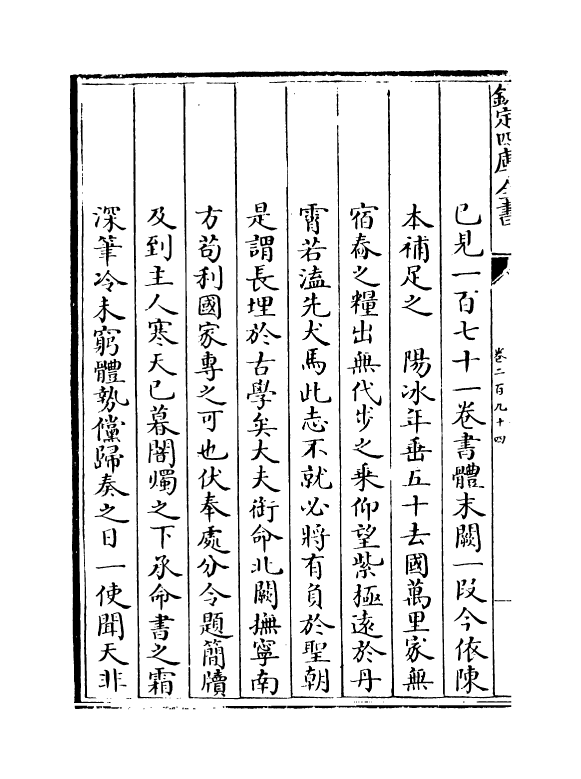 欽定四庫全書
卷二百九十四
已見一百七十一卷書體末闕一段今依陳
本補足之　陽冰年垂五十去國萬里家無
宿舂之糧出無代步之乘仰望紫極遠於丹
霄若溘先犬馬此志不就必將有負於聖朝
是謂長埋於古學矣大夫銜命北闕撫寧南
方苟利國家專之可也伏奉處分令題簡牘
及到主人寒天已暮闇燭之下承命書之霜
深筆冷未窮體勢儻歸奏之日一使聞天非